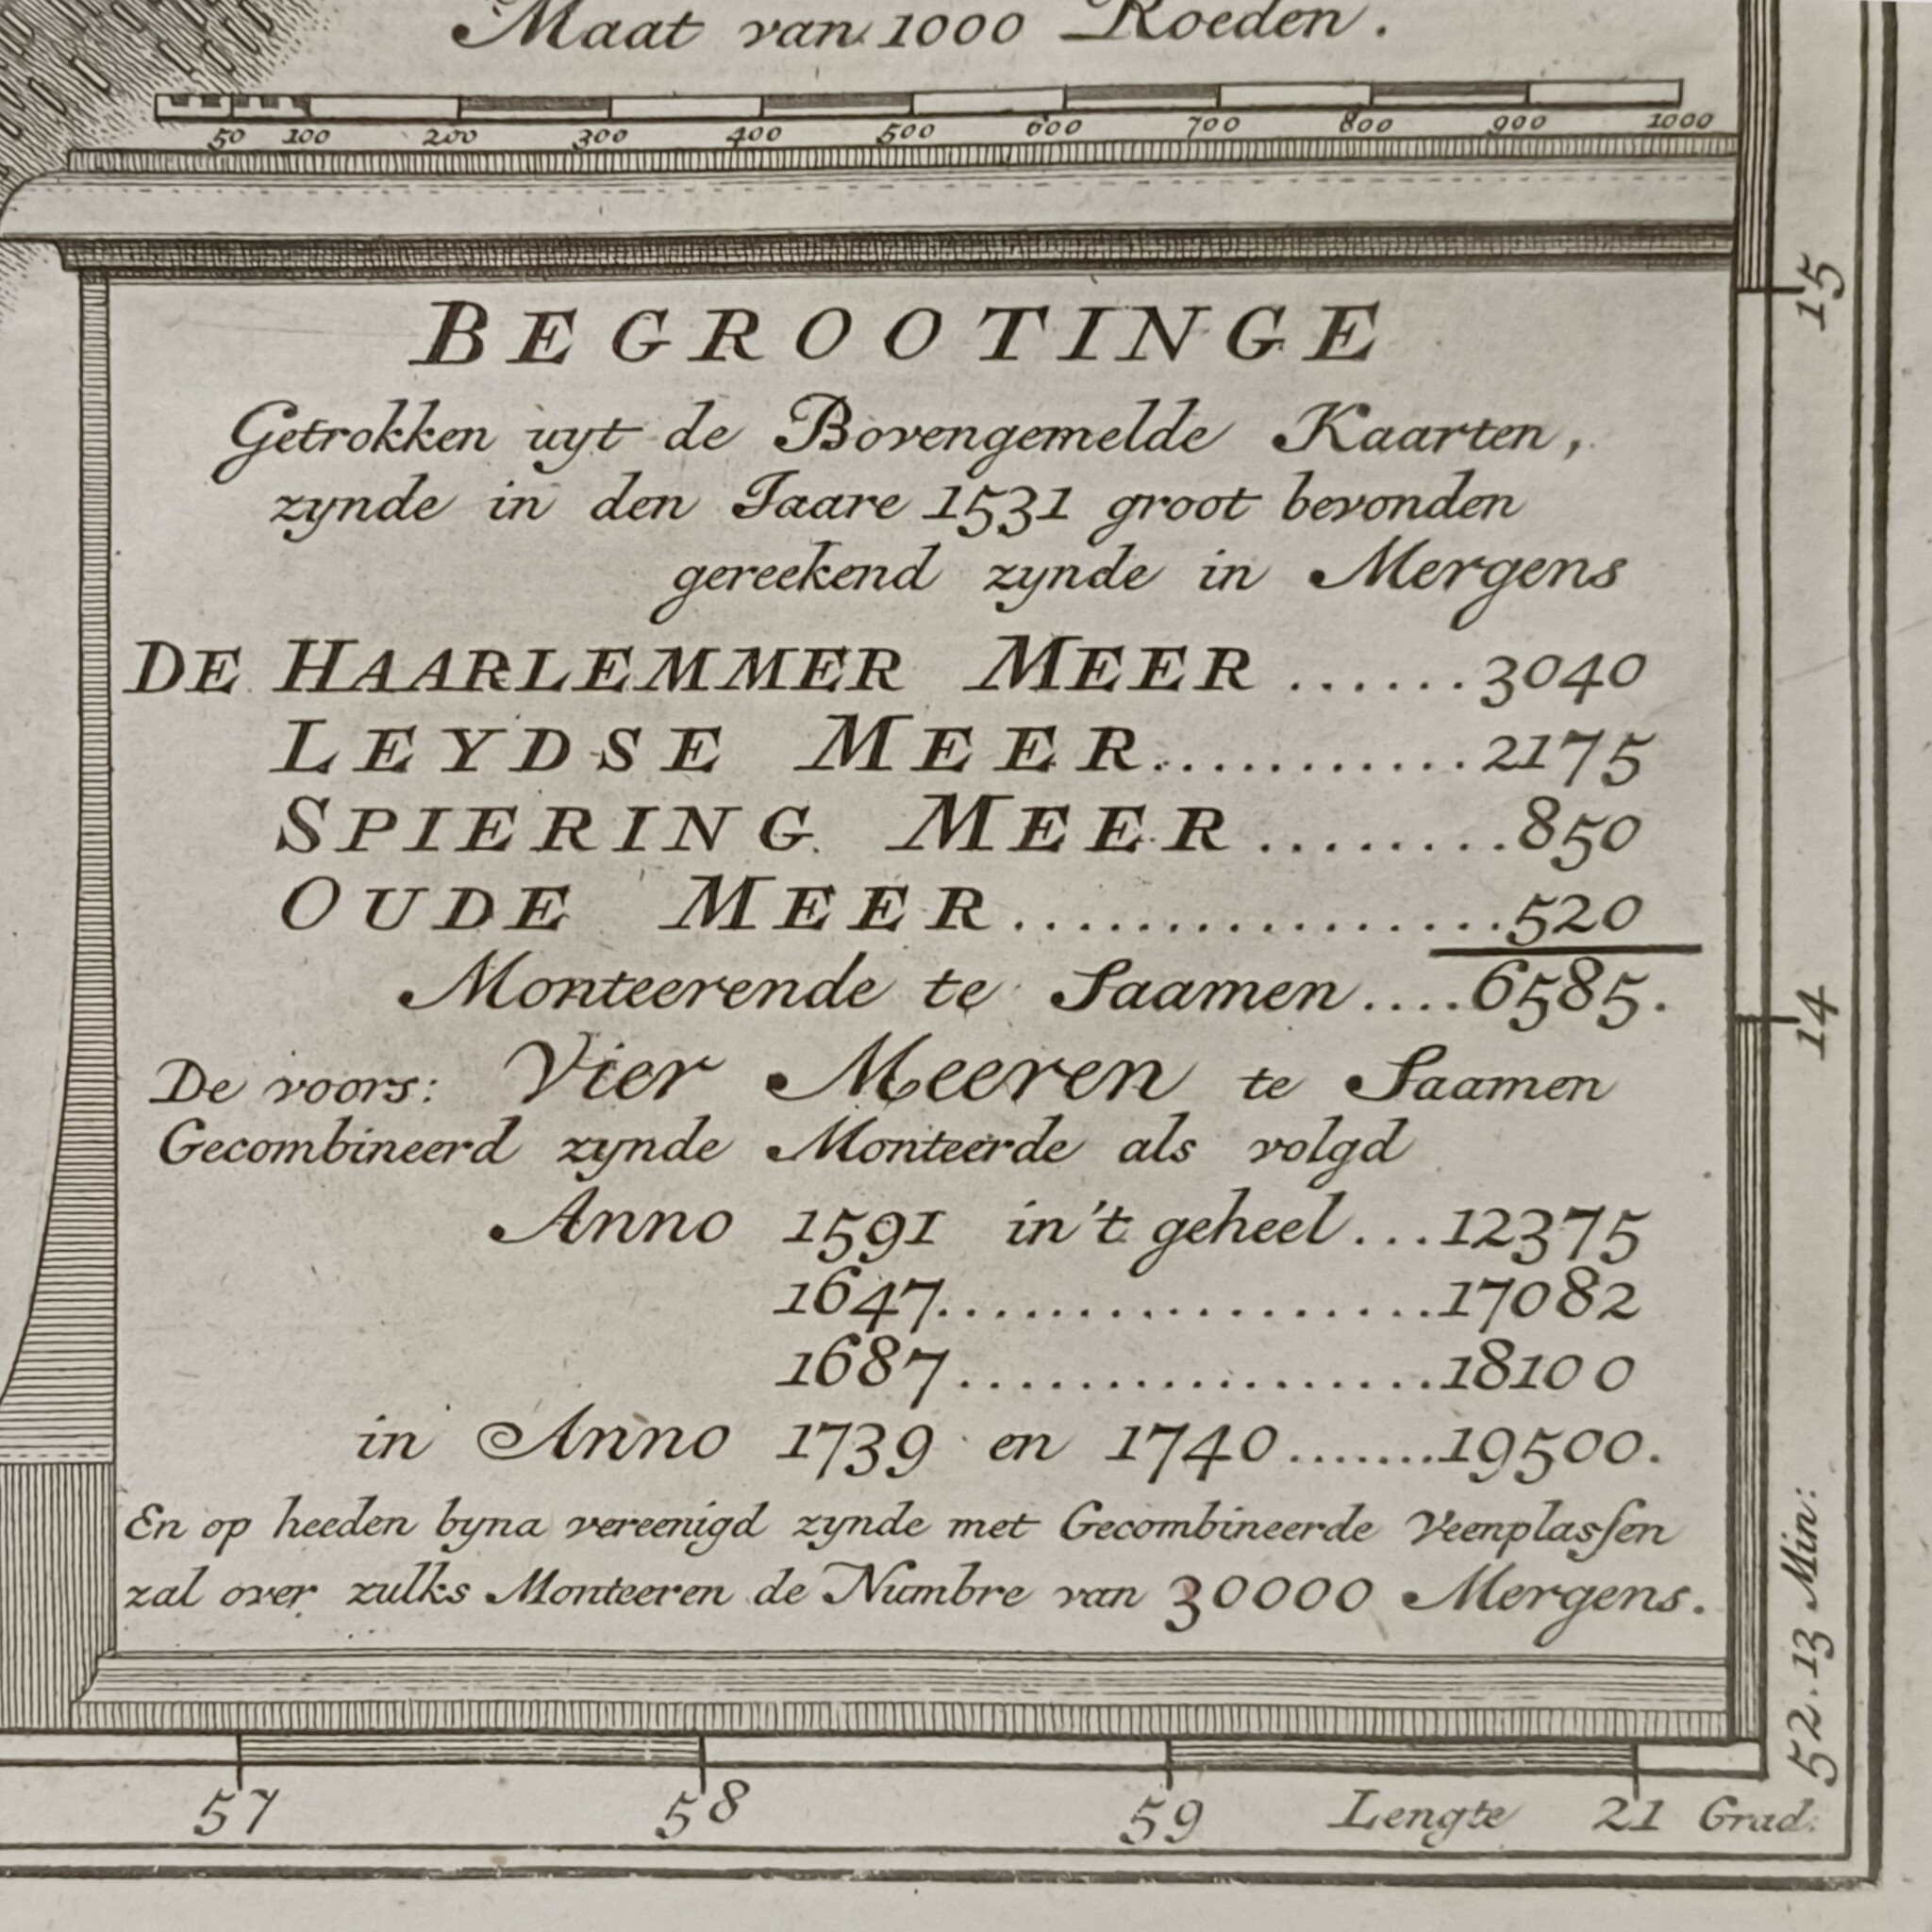 Maat van 1000 Roeden.
50 100 200 300 400 500 600 700 800 900 1000
BEGROOTINGE
Getrokken uyt de Bovengemelde Kaarten,
zynde in den Jaare 1531 groot bevonden
gereekend zynde in Mergens
DE HAARLEMMER MEER ......3040
LEYDSE MEER............2175
SPIERING MEER.........850
OUDE MEER..................520
Monteerende te Saamen....6585.
De voors: Vier Meeren te Saamen
Gecombineerd zynde Monteerde als volgd
Anno 1591 in't geheel...12375
1647...................17082
1687...................18100
in Anno 1739 en 1740.......19500.
En op heeden byna vereenigd zynde met Gecombineerde Veenplasſen
zal over zulks Monteeren de Numbre van 30000 Mergens.
15
14
52.13 Min:
57 58 59 Lengte 21 Grad: